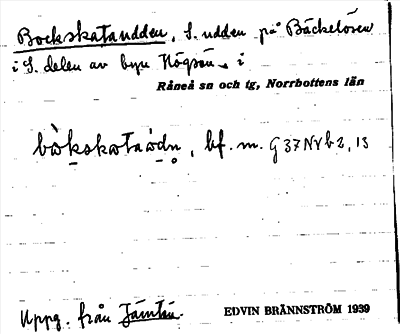 Bockskataudden, S. udden på Bäckelösen
i S. delen av byn Högsön i
Råneå sn och tg, Norrbottens län
bòkskataòdn, bf. m. G 37 NV b 2, 13
Uppg. från Jämtön.
EDVIN BRÄNNSTRÖM 1939